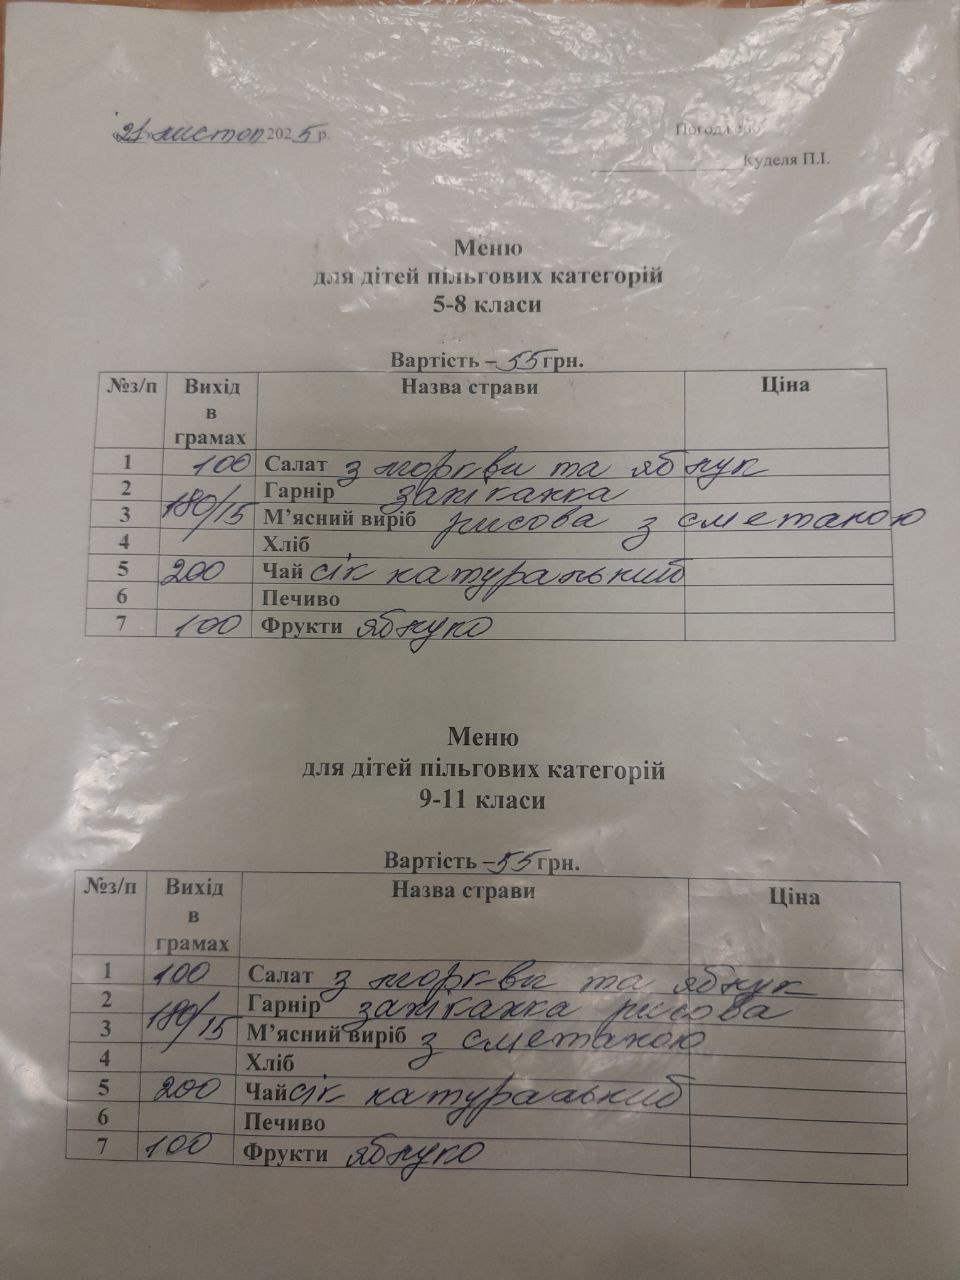 «21» листоп 2025 р.
Погоджено
Куделя П.І.
Меню
для дітей пільгових категорій
5-8 класи
Вартість – 55 грн.
№з/п Вихід в грамах Назва страви Ціна
1 100 Салат з моркви та яблук
2 Гарнір запіканка
3 180/15 М’ясний виріб рисова з сметаною
4 Хліб
5 200 Чай сік натуральний
6 Печиво
7 100 Фрукти яблуко
Меню
для дітей пільгових категорій
9-11 класи
Вартість – 55 грн.
№з/п Вихід в грамах Назва страви Ціна
1 100 Салат з моркви та яблук
2 Гарнір запіканка рисова
3 180/15 М’ясний виріб з сметаною
4 Хліб
5 200 Чай сік натуральний
6 Печиво
7 100 Фрукти яблуко